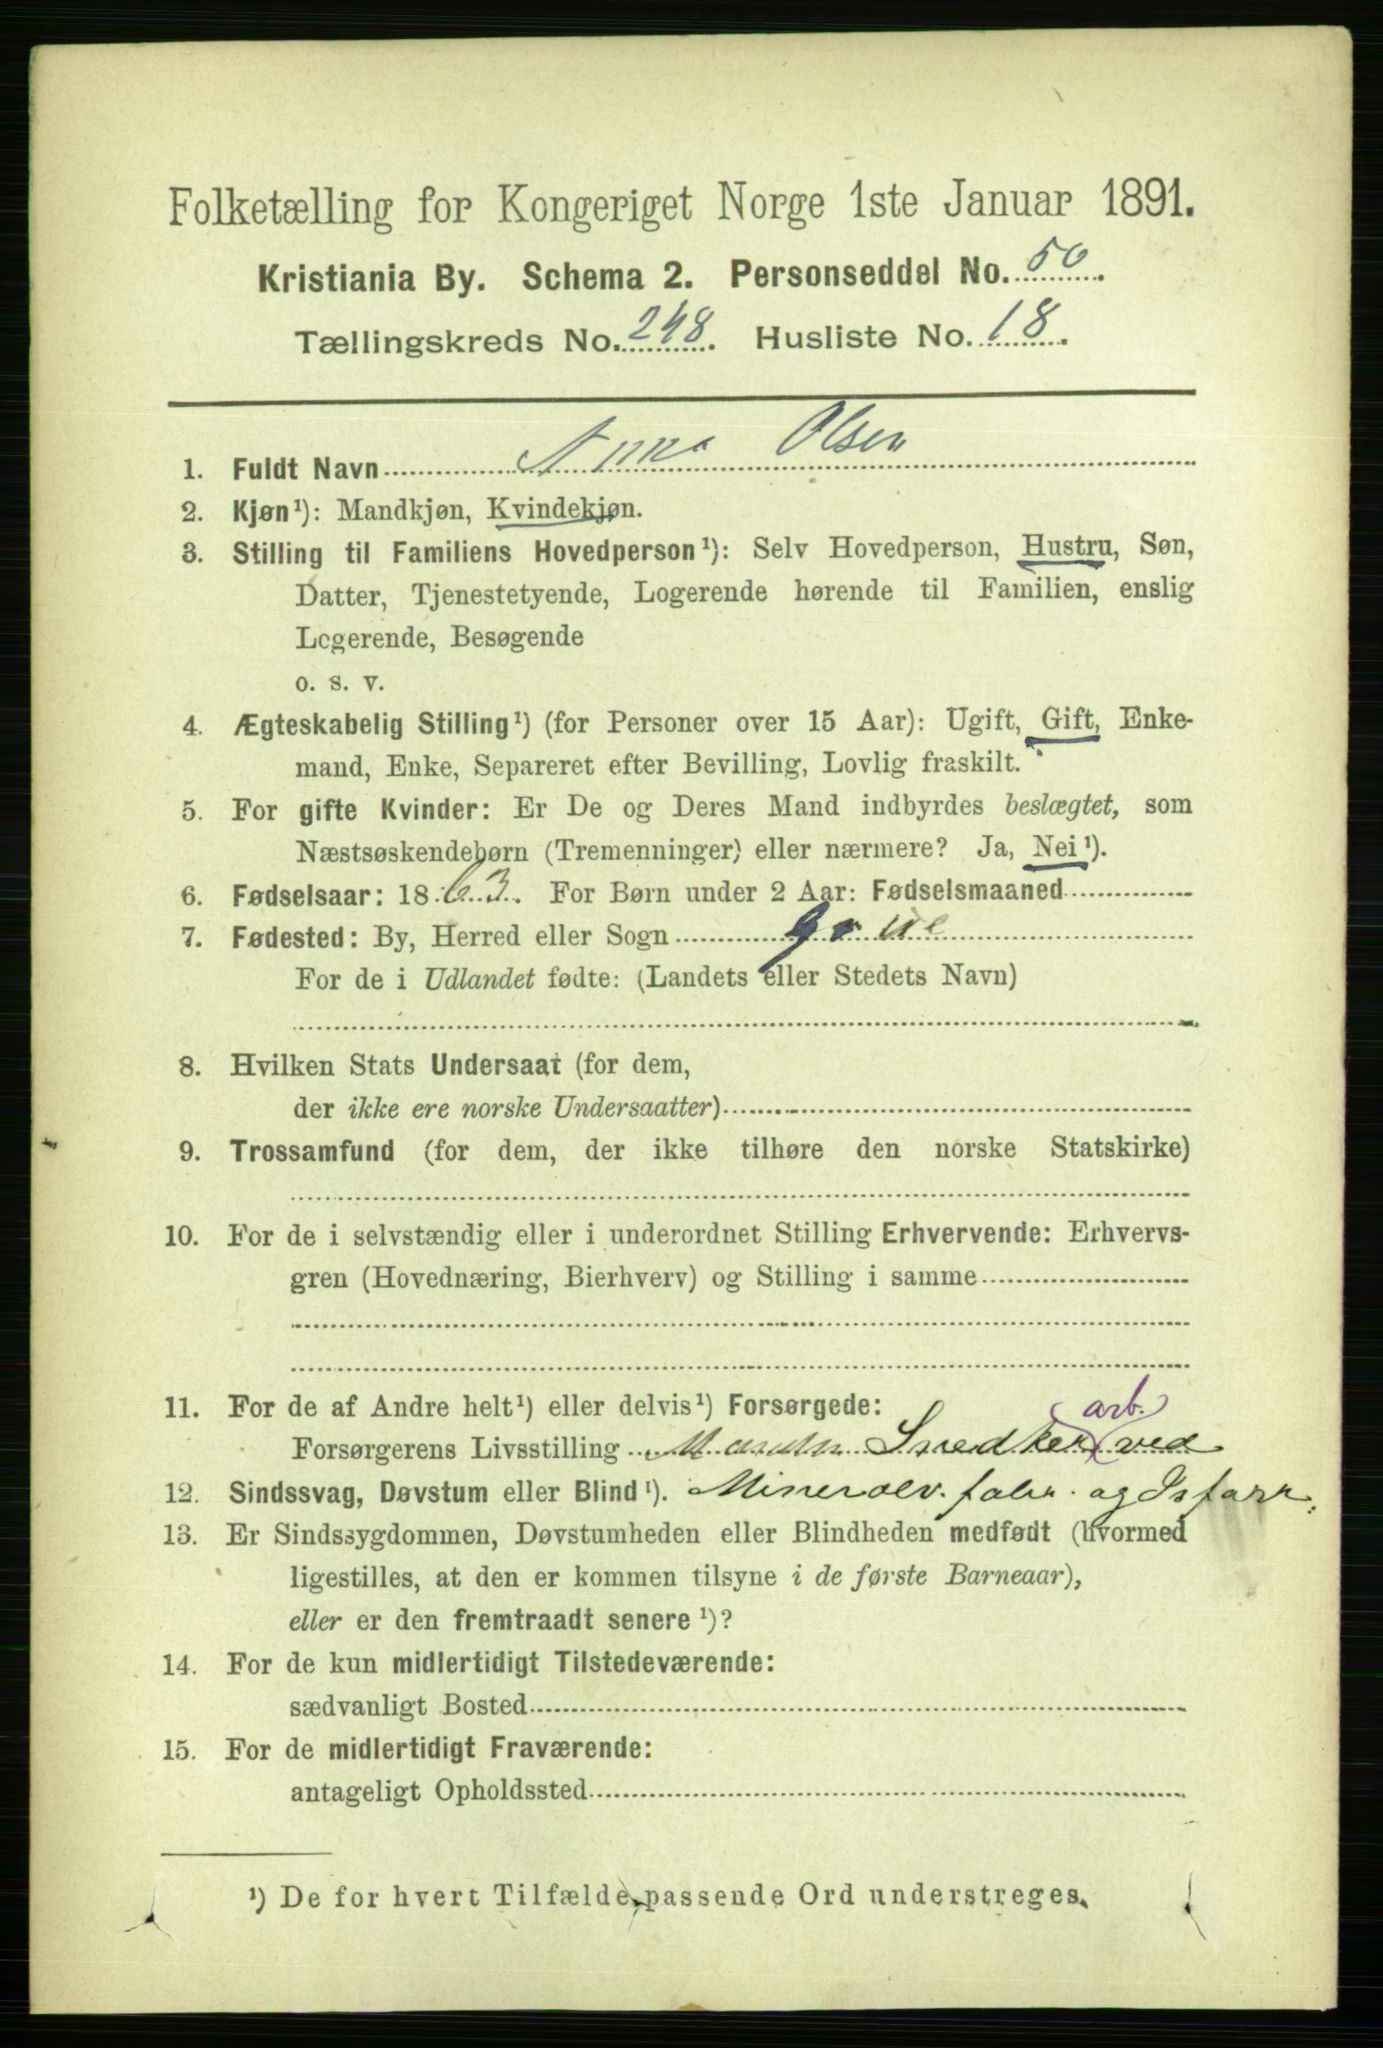 Folketælling for Kongeriget Norge 1ste Januar 1891.
Kristiania By. Schema 2. Personseddel No. 50.
Tællingskreds No. 248. Husliste No. 18.
1. Fuldt Navn Anna Olsen
2. Kjøn¹): Mandkjøn, Kvindekjøn.
3. Stilling til Familiens Hovedperson¹): Selv Hovedperson, Hustru, Søn,
Datter, Tjenestetyende, Logerende hørende til Familien, enslig
Logerende, Besøgende
o. s. v.
4. Ægteskabelig Stilling¹) (for Personer over 15 Aar): Ugift, Gift, Enke-
mand, Enke, Separeret efter Bevilling, Lovlig fraskilt.
5. For gifte Kvinder: Er De og Deres Mand indbyrdes beslægtet, som
Næstsøskendebørn (Tremenninger) eller nærmere? Ja, Nei¹).
6. Fødselsaar: 1863. For Børn under 2 Aar: Fødselsmaaned
7. Fødested: By, Herred eller Sogn Grue
For de i Udlandet fødte: (Landets eller Stedets Navn)
8. Hvilken Stats Undersaat (for dem,
der ikke ere norske Undersaatter)
9. Trossamfund (for dem, der ikke tilhøre den norske Statskirke)
10. For de i selvstændig eller i underordnet Stilling Erhvervende: Erhvervs-
gren (Hovednæring, Bierhverv) og Stilling i samme
11. For de af Andre helt¹) eller delvis¹) Forsørgede:
arb.
Forsørgerens Livsstilling Manden Snedker ved
12. Sindssvag, Døvstum eller Blind¹). Mineralv. fabr. og Isforr.
13. Er Sindssygdommen, Døvstumheden eller Blindheden medfødt (hvormed
ligestilles, at den er kommen tilsyne i de første Barneaar),
eller er den fremtraadt senere¹)?
14. For de kun midlertidigt Tilstedeværende:
sædvanligt Bosted
15. For de midlertidigt Fraværende:
antageligt Opholdssted
¹) De for hvert Tilfælde passende Ord understreges.